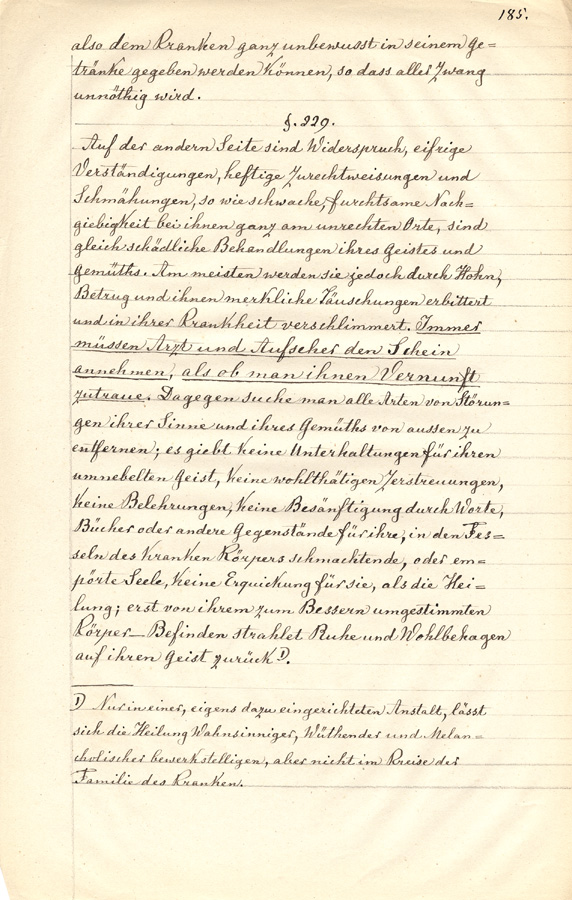 185.
also dem Kranken ganz unbewusst in seinem Ge=
tränke gegeben werden können, so dass aller Zwang
unnöthig wird.
§. 229.
Auf der andern Seite sind Widerspruch, eifrige
Verständigungen, heftige Zurechtweisungen und
Schmähungen, so wie schwache, furchtsame Nach=
giebigkeit bei ihnen ganz am unrechten Orte, sind
gleich schädliche Behandlungen ihres Geistes und
Gemüths. Am meisten werden sie jedoch durch Hohn,
Betrug und ihnen merkliche Täuschungen erbittert
und in ihrer Krankheit verschlimmert. Immer
müssen Arzt und Aufseher den Schein
annehmen, als ob man ihnen Vernunft
zutraue. Dagegen suche man alle Arten von Störun=
gen ihrer Sinne und ihres Gemüths von aussen zu
entfernen; es giebt keine Unterhaltungen für ihren
umnebelten Geist, keine wohlthätigen Zerstreuungen,
keine Belehrungen, keine Besänftigung durch Worte,
Bücher oder andere Gegenstände für ihre, in den Fes=
seln des kranken Körpers schmachtende, oder em=
pörte Seele, keine Erquickung für sie, als die Hei=
lung; erst von ihrem zum Bessern umgestimmten
Körper-Befinden strahlet Ruhe und Wohlbehagen
auf ihren Geist zurück 1).
1) Nur in einer, eigens dazu eingerichteten Anstalt, lässt
sich die Heilung Wahnsinniger, Wüthender und Melan=
cholischer bewerkstelligen, aber nicht im Kreise der
Familie des Kranken.